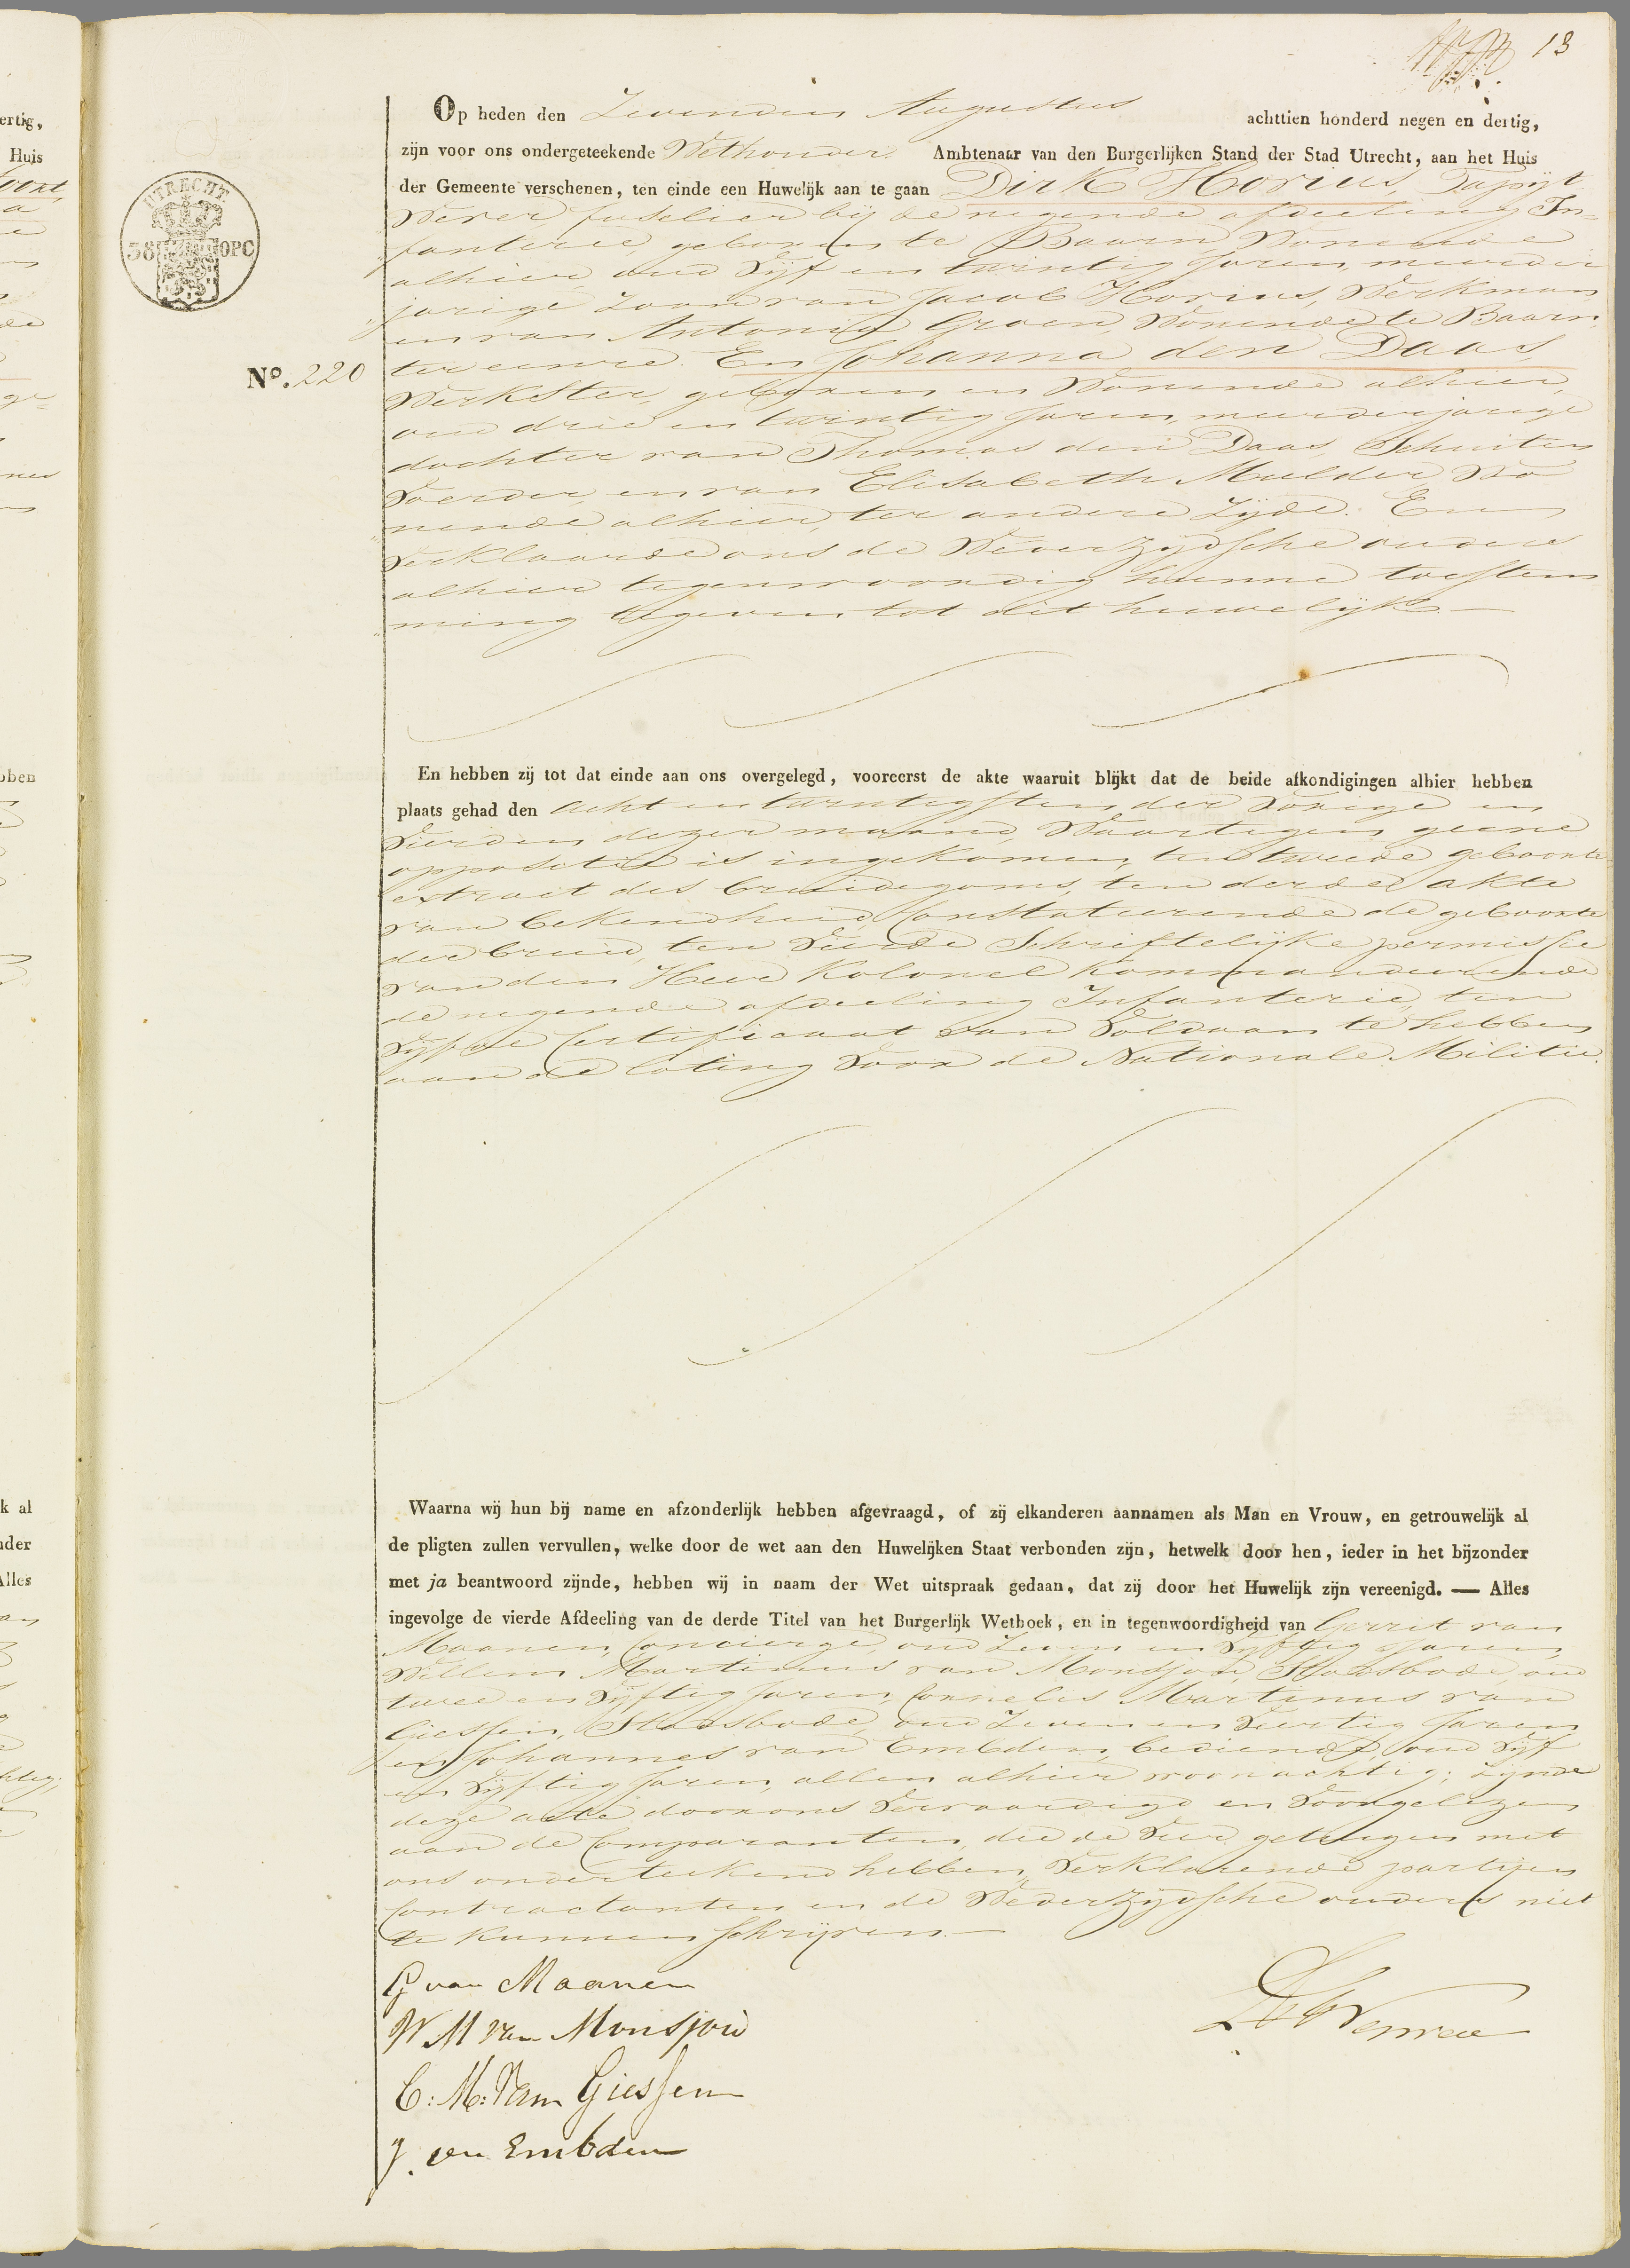 13
Op heden den Zevenden Augustus achttien honderd negen en dertig,
zijn voor ons ondergeteekende Wethouder, Ambtenaar van den Burgerlijken Stand der Stad Utrecht, aan het Huis
der Gemeente verschenen, ten einde een Huwelijk aan te gaan Dirk Horius, Tapijt
Wever, fuselier bij de negende afdeeling In=
fanterie, geboren te Baarn, Wonende
alhier, oud Vijf en twintig Jaren, meerder
jarige Zoon van Jacob Horius, Werkman
en van Antonia Groen, Wonende te Baarn,
ter eenre. En Johanna den Daas,
Werkster, geboren en Wonende alhier,
oud drie en twintig Jaren, meerderjarige
dochter van Thomas den Daas, Schuiten
Voerder, en van Elisabeth Mulder, Wo
nende alhier, ter andere Zijde. En
Verklaarde ons de Wederzijdsche ouders
alhier tegenwoordig hunne toestem
ming tegeven tot dit huwelijk
UTRECHT.
38 OPC
No. 220
En hebben zij tot dat einde aan ons overgelegd, vooreerst de akte waaruit blijkt dat de beide afkondigingen alhier hebben
plaats gehad den acht en twintigsten der Vorige en
Vierden dezer maand, Waartegen geene
oppositie is ingekomen, ten tweede geboorte
extract des bruidegoms, ten derde akte
van bekendheid, Constateerende de geboorte
der bruid, ten Vierde Schriftelijke permissie
van den Heer Kolonel Kommanderende
de negende afdeeling Infanterie, ten
Vijfde Certificaat van Voldaan te hebben
aan de loting Voor de Nationale Militie.
Waarna wij hun bij name en afzonderlijk hebben afgevraagd, of zij elkanderen aannamen als Man en Vrouw, en getrouwelijk al
de pligten zullen vervullen, welke door de wet aan den Huwelijken Staat verbonden zijn, hetwelk door hen, ieder in het bijzonder
met ja beantwoord zijnde, hebben wij in naam der Wet uitspraak gedaan, dat zij door het Huwelijk zijn vereenigd. — Alles
ingevolge de vierde Afdeeling van de derde Titel van het Burgerlijk Wetboek, en in tegenwoordigheid van Gerrit van
Maanen, Concierge, oud Zeven en Vijftig Jaren,
Willem Martinus van Monsjou, Stadsbode, oud
twee en Vijftig Jaren, Cornelis Martinus van
Giessen, Stadsbode, oud Zeven en Veertig Jaren
en Johannes van Embden, bediende, oud Vijf
en Vijftig Jaren, allen alhier woonachtig; Zijnde
deze acte door ons Vervaardigd en Voorgelezen
aan de Comparanten, die de Vier getuigen met
ons onderteekend hebben, Verklarende partijen
Contractanten en de Wederzijdsche ouders niet
te kunnen Schrijven
G van Maanen
W M van Monsjou
C: M: Van Giessen
J. van Embden